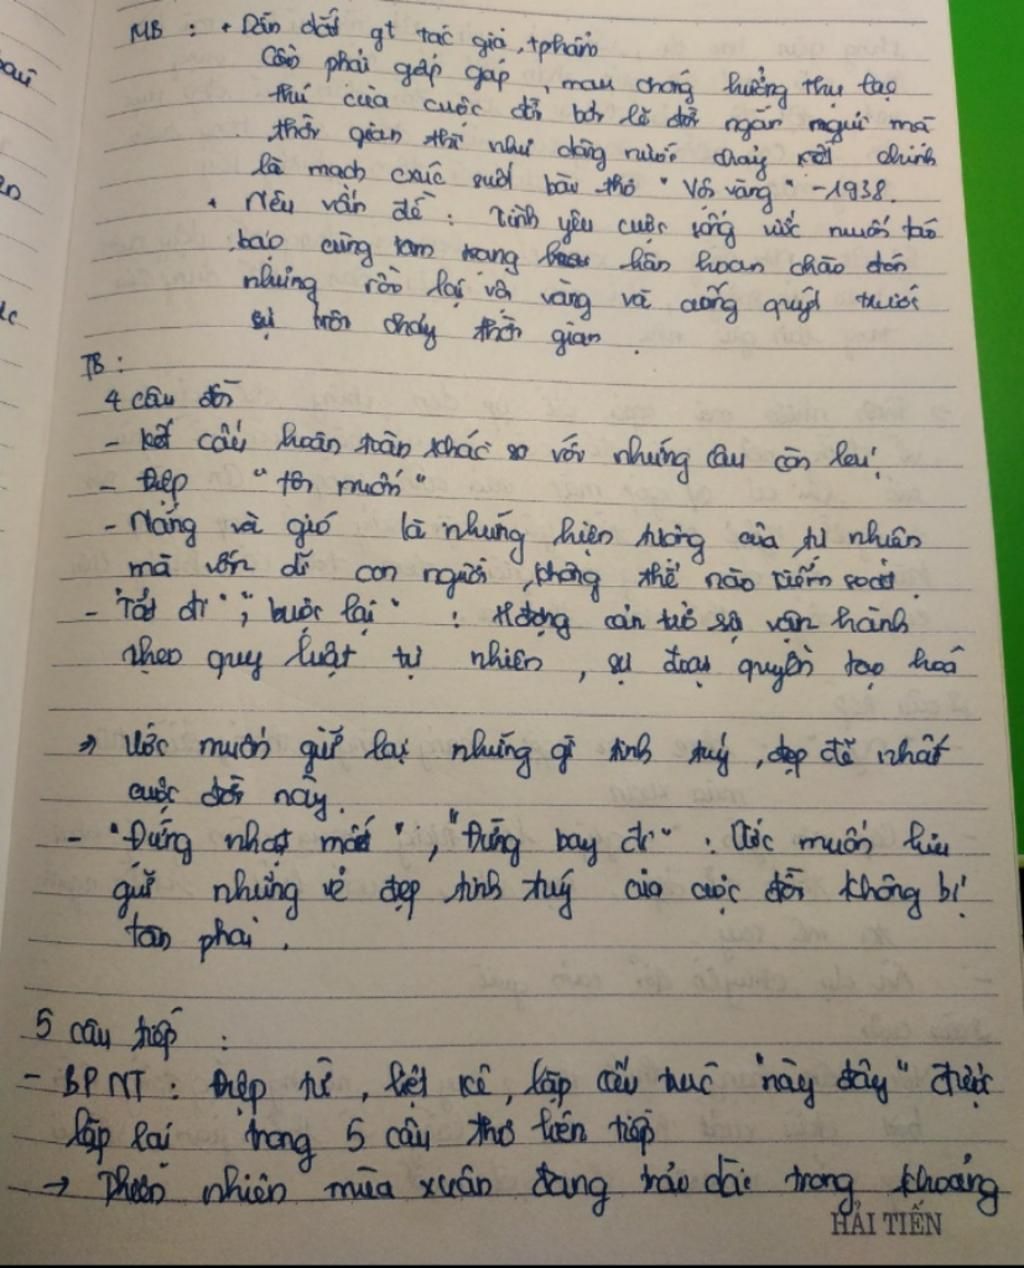 MB : + Dẫn dắt gt tác giả, tphẩm
Cần phải gấp gáp, mau chóng hưởng thụ tạo
thú của cuộc đời bởi lẽ đời ngắn ngủi mà
thời gian thì như dòng nước chảy xiết chính
là mạch cxúc suốt bài thơ "Vội vàng" - 1938.
+ Nêu vấn đề : Tình yêu cuộc sống ước muốn táo
bạo cùng tâm trạng hân hoan chào đón
nhưng rồi lại vội vàng và cuống quýt trước
sự trôi chảy thời gian.
TB :
4 câu đầu
- Kết cấu hoàn toàn khác so với những câu còn lại
- Điệp "tôi muốn"
- Nắng và gió là những hiện tượng của tự nhiên
mà vốn dĩ con người không thể nào kiểm soát.
- "Tắt đi", "buộc lại" : cản trở sự vận hành
theo quy luật tự nhiên, sự đoạt quyền tạo hoá
=> Ước muốn giữ lại những gì tinh tuý, đẹp đẽ nhất
cuộc đời này.
- "Đừng nhạt mất", "Đừng bay đi" : Ước muốn lưu
giữ những vẻ đẹp tinh tuý của cuộc đời không bị
tàn phai.
5 câu tiếp :
- BPNT : Điệp từ, liệt kê, lặp cấu trúc "này đây" được
lặp lại trong 5 câu thơ liên tiếp
-> Thiên nhiên mùa xuân đang trải dài trong khoảng
HẢI TIẾN